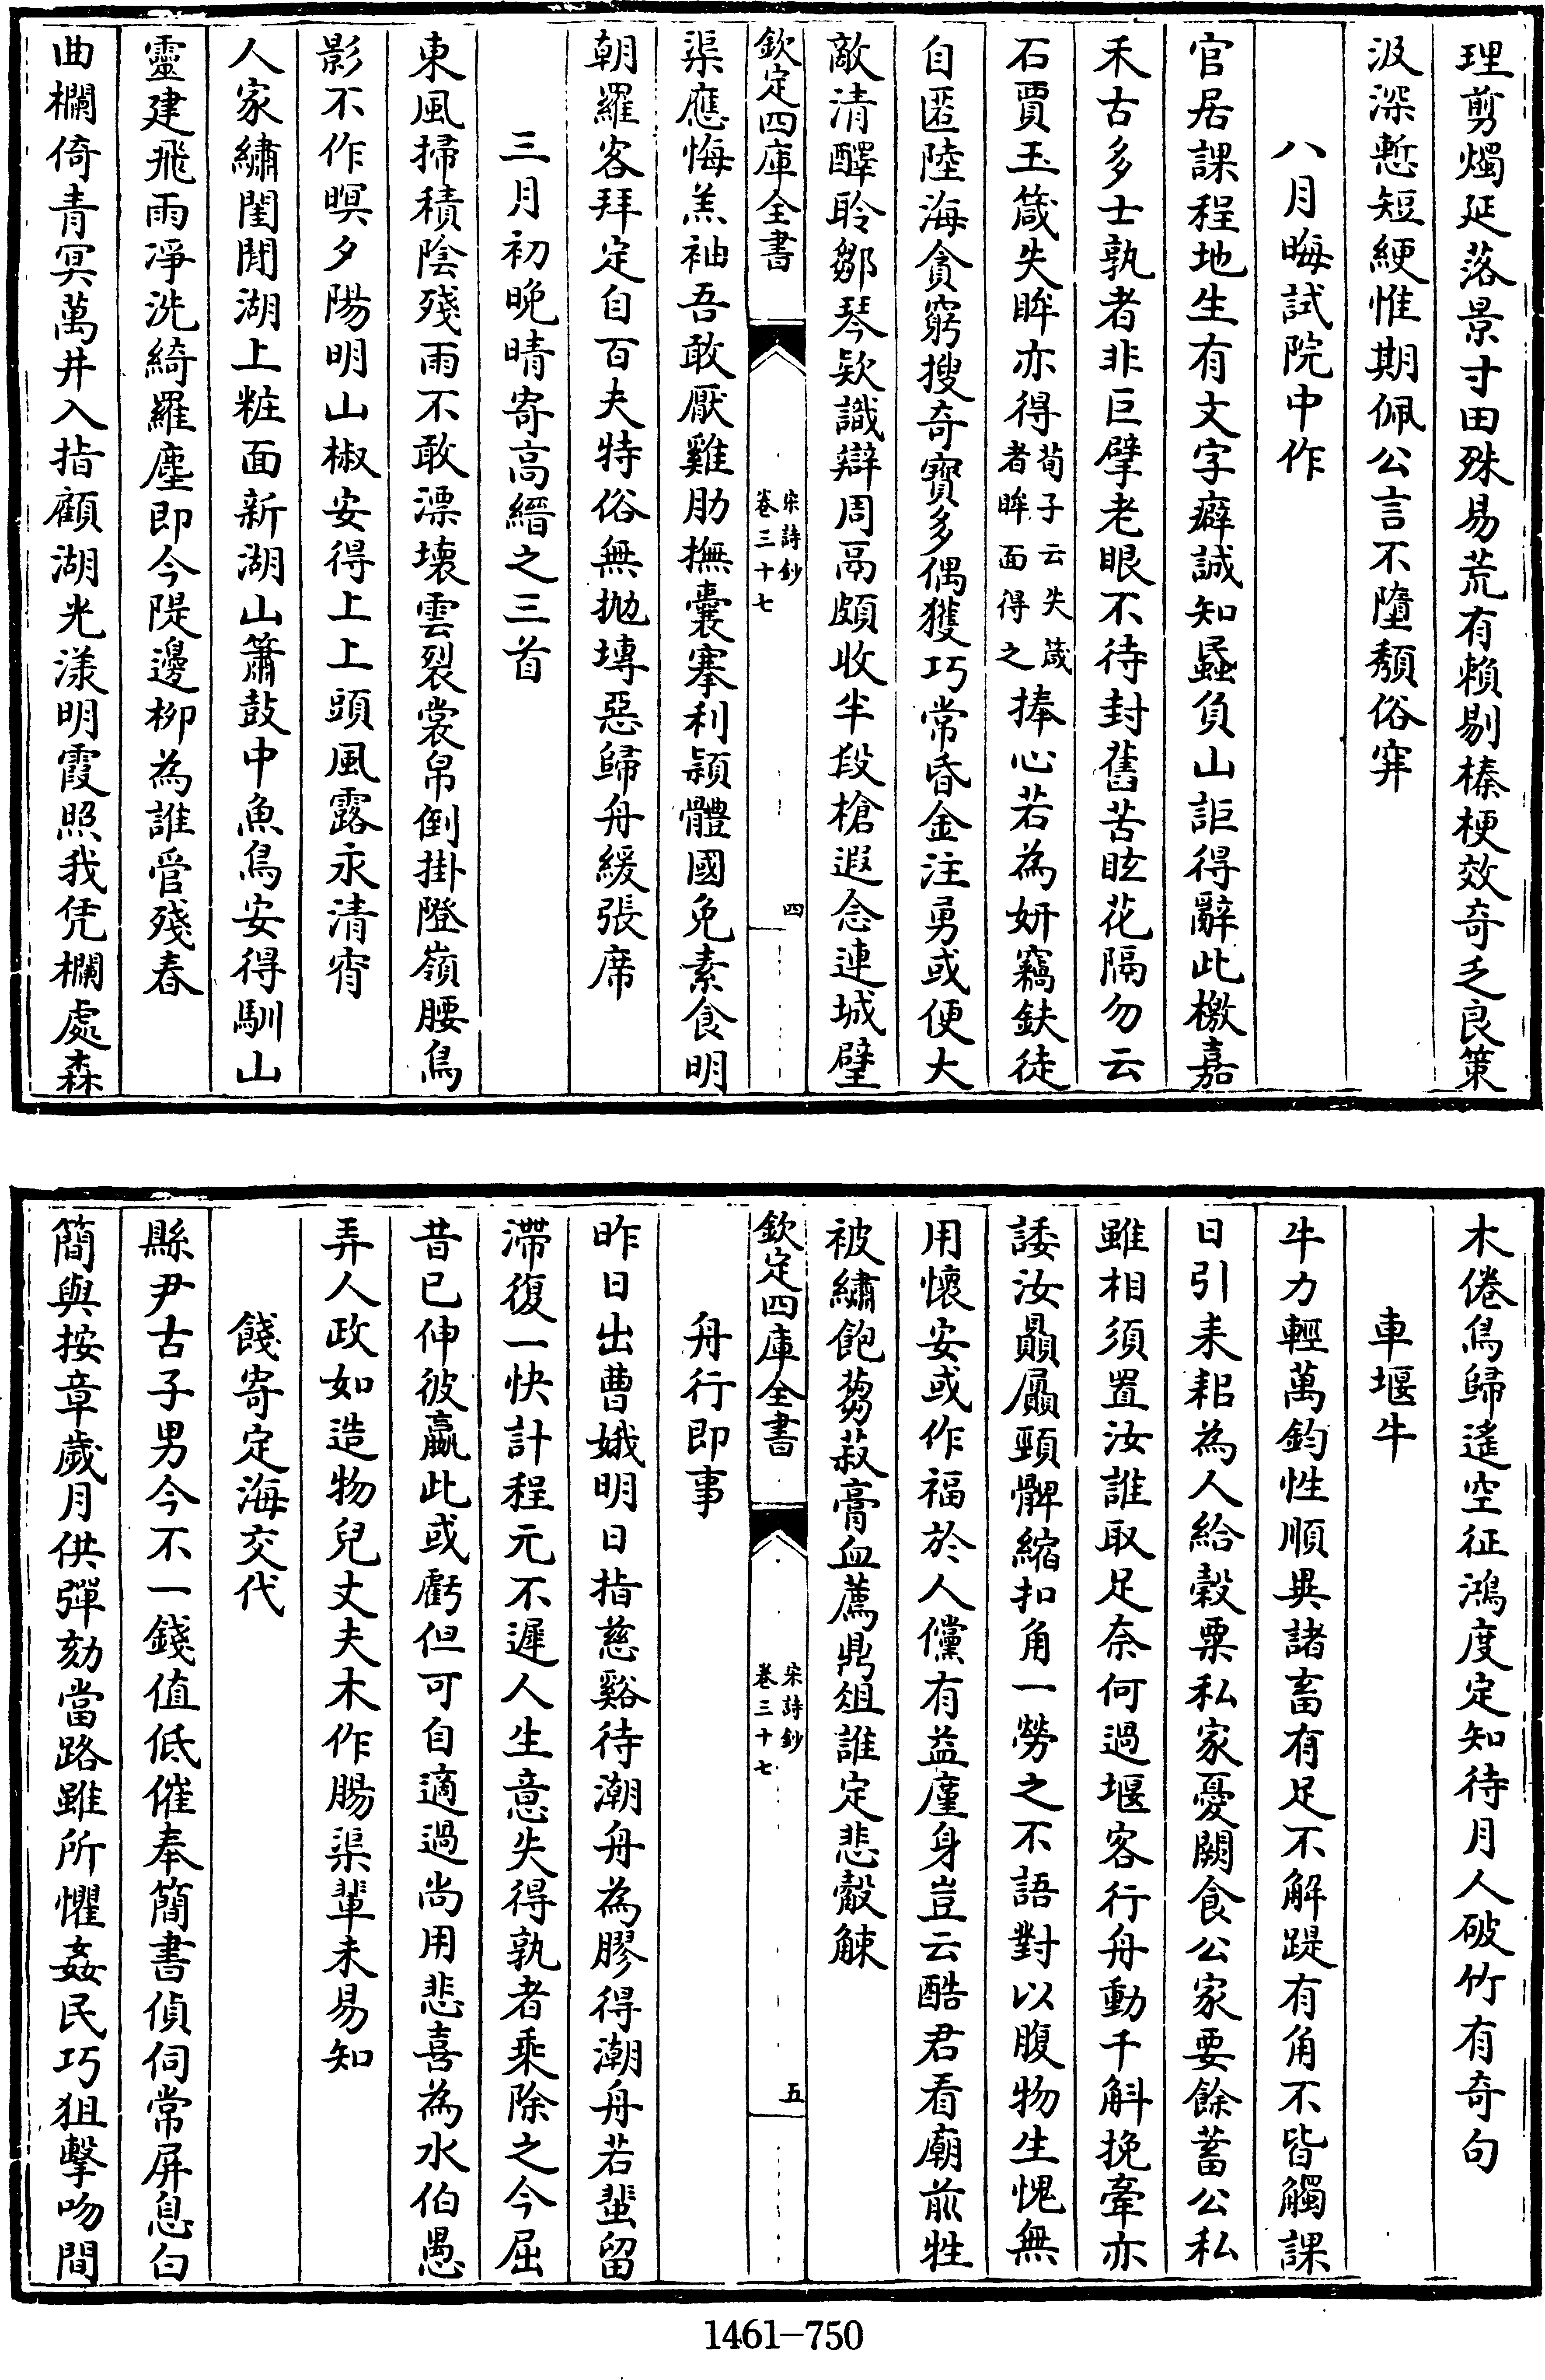 理剪燭延落景寸田殊易荒有賴剔榛梗效奇乏良策
汲深慙短綆惟期佩公言不墮頽俗穽
八月晦試院中作
官居課程地生有文字癖誠知蟁負山詎得辭此檄嘉
禾古多士孰者非巨擘老眼不待封舊苦眩花隔勿云
石賈玉箴失眸亦得荀子云失箴者眸面得之捧心若為妍竊鈇徒
自匿陸海貪窮搜奇寶多偶獲巧常昏金注勇或便大
敵清醳聆鄒琴欵識辯周鬲頗收半段槍遐念連城璧
欽定四庫全書
宋詩鈔
卷三十七
四
渠應悔羔袖吾敢厭雞肋撫囊搴利頴體國免素食明
朝羅客拜定自百夫特俗無拋塼惡歸舟緩張席
三月初晚晴寄高縉之三首
東風掃積陰殘雨不敢漂壞雲裂裳帛倒掛隥嶺腰鳥
影不作暝夕陽明山椒安得上上頭風露永清宵
人家繡閨閒湖上粧面新湖山簫鼓中魚鳥安得馴山
靈建飛雨淨洗綺羅塵即今隄邊柳為誰管殘春
曲欄倚青冥萬井入指顧湖光漾明霞照我凭欄處森
木倦鳥歸遙空征鴻度定知待月人破竹有奇句
車堰牛
牛力輕萬鈞性順異諸畜有足不解踶有角不皆觸課
日引耒耜為人給穀粟私家憂闕食公家要餘蓄公私
雖相須置汝誰取足奈何過堰客行舟動千斛挽牽亦
諉汝贔屭頸髀縮扣角一勞之不語對以腹物生愧無
用懷安或作福於人儻有益廑身豈云酷君看廟前牲
被繡飽蒭菽膏血薦鼎俎誰定悲觳觫
欽定四庫全書
宋詩鈔
卷三十七
五
舟行即事
昨日出曹娥明日指慈谿待潮舟為膠得潮舟若蜚留
滯復一快計程元不遲人生意失得孰者乘除之今屈
昔已伸彼贏此或虧但可自適過尚用悲喜為水伯愚
弄人政如造物兒丈夫木作腸渠輩未易知
餞寄定海交代
縣尹古子男今不一錢值低催奉簡書偵伺常屏息白
簡與按章歲月供彈劾當路雖所懼姦民巧狙擊吻間
1461-750